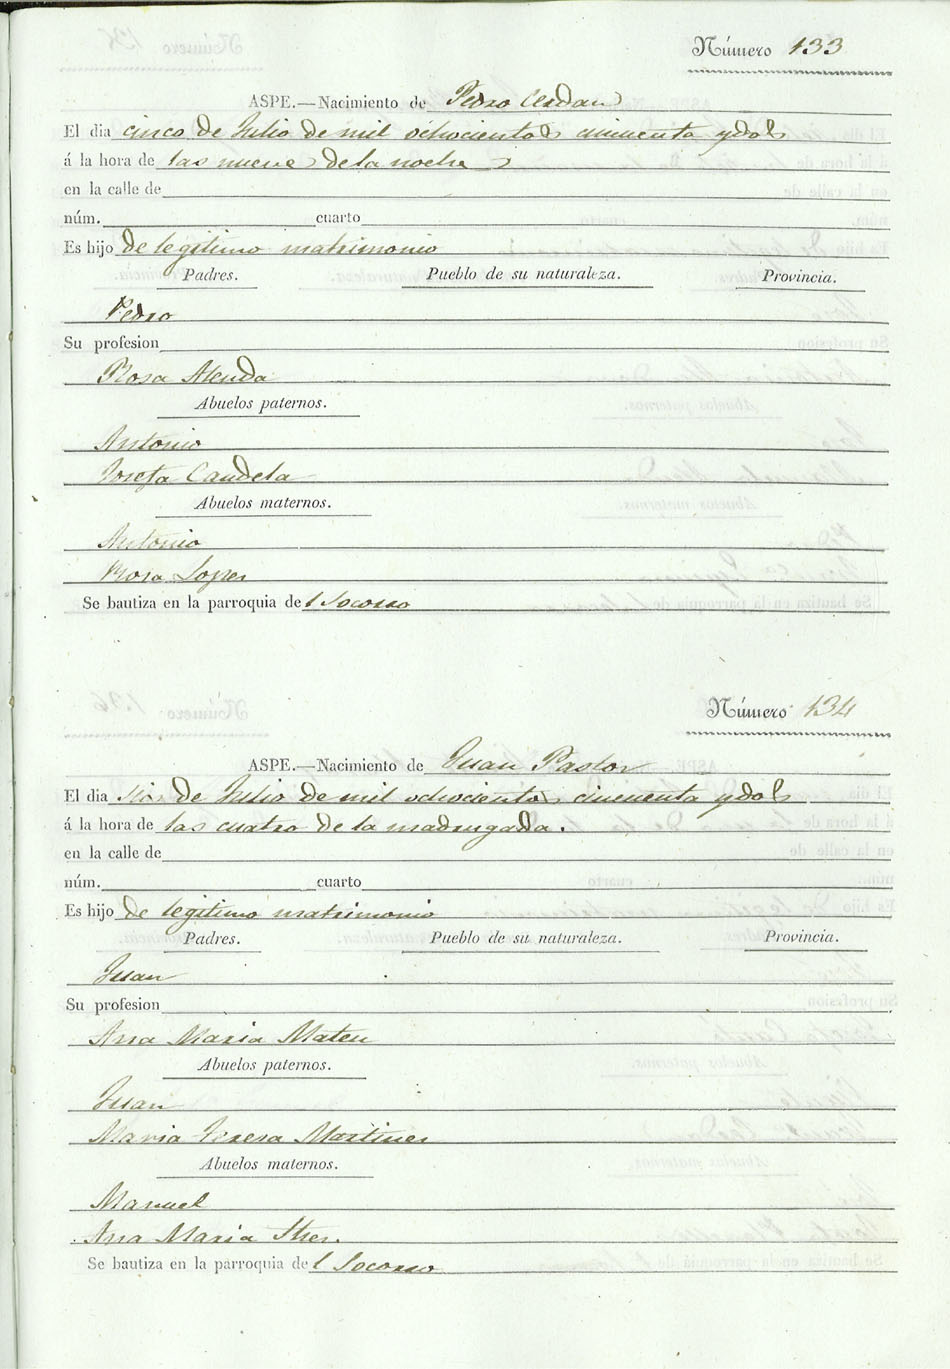 Número 133
ASPE.—Nacimiento de Pedro Cerdan
El dia cinco de Julio de mil ochocientos cincuenta y dos
á la hora de las nueve de la noche
en la calle de
núm. cuarto
Es hijo de legitimo matrimonio
Padres. Pueblo de su naturaleza. Provincia.
Pedro
Su profesion
Rosa Alenda
Abuelos paternos.
Antonio
Josefa Candela
Abuelos maternos.
Antonio
Rosa Lopez
Se bautiza en la parroquia del Socorro
Número 134
ASPE.—Nacimiento de Juan Pastor
El dia de Julio de mil ochocientos cincuenta y dos
á la hora de las cuatro de la madrugada.
en la calle de
núm. cuarto
Es hijo de legitimo matrimonio
Padres. Pueblo de su naturaleza. Provincia.
Juan
Su profesion
Ana Maria Mateu
Abuelos paternos.
Juan
Maria Teresa Martinez
Abuelos maternos.
Manuel
Ana Maria
Se bautiza en la parroquia del Socorro